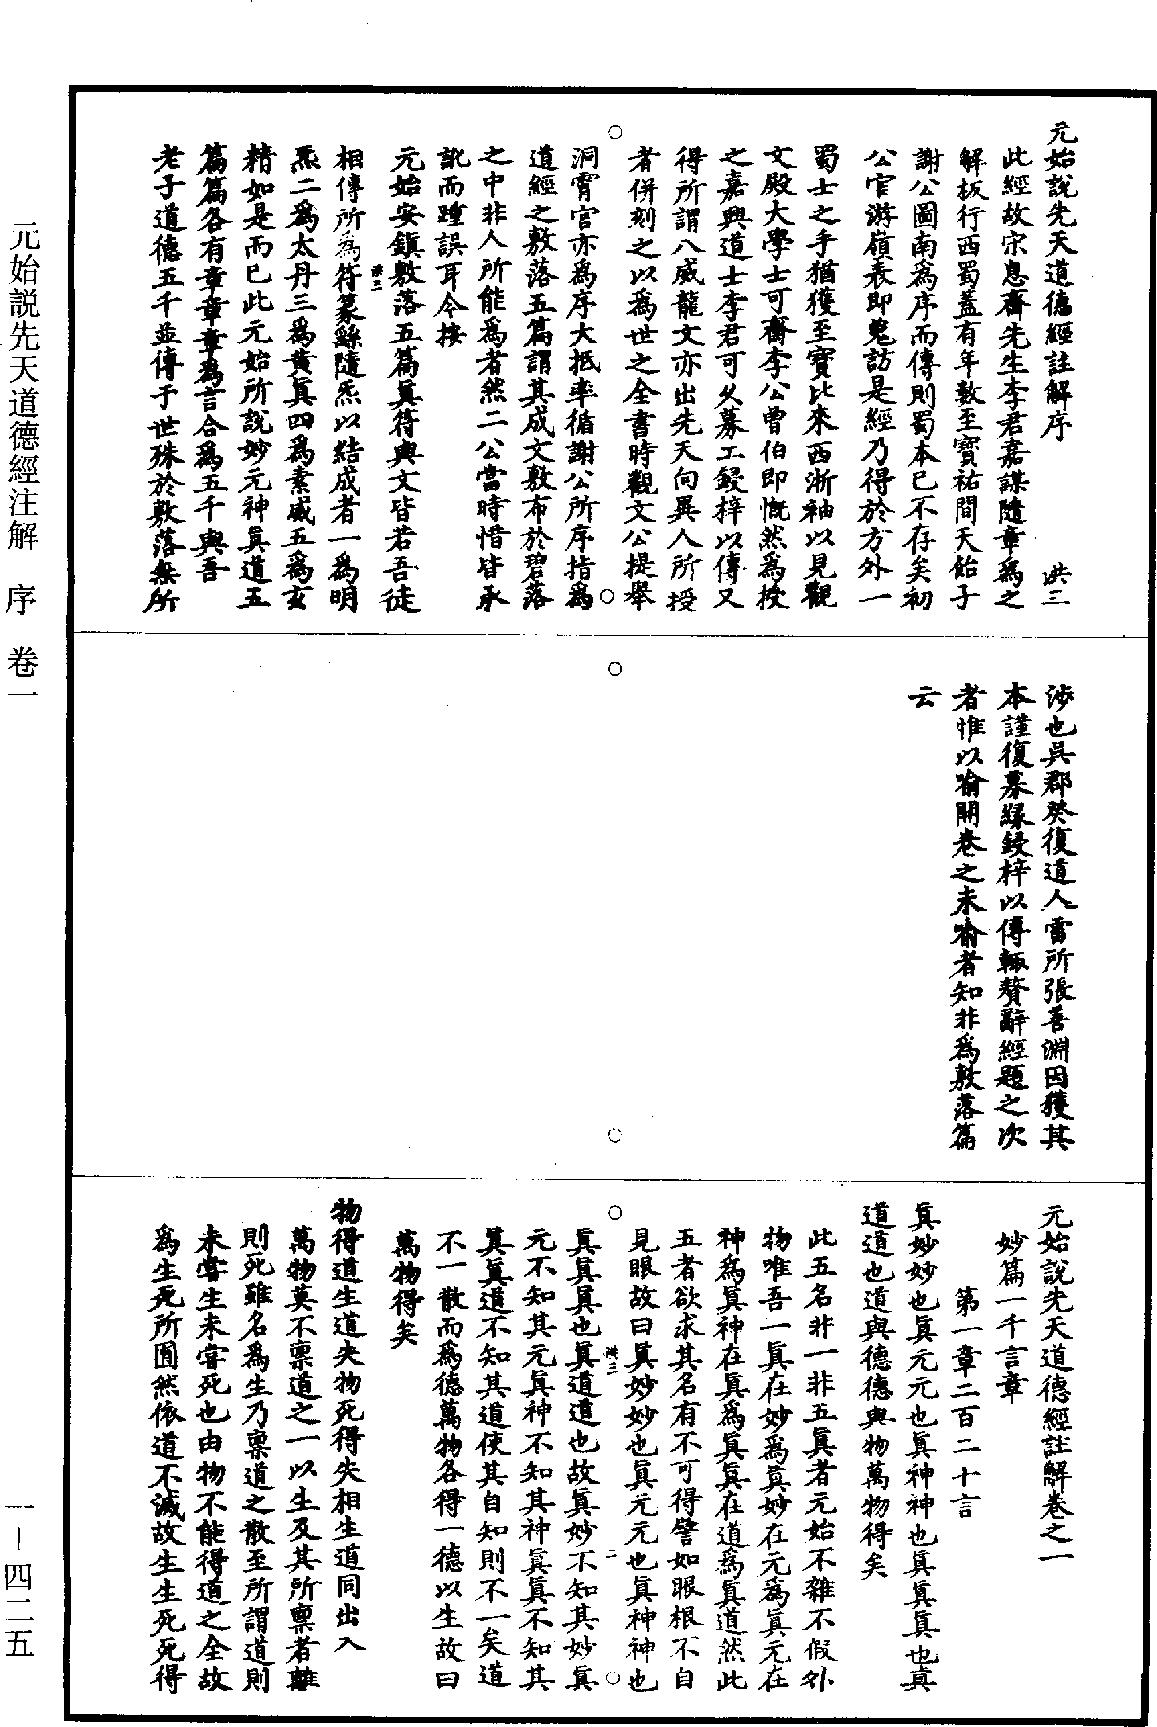 元始說先天道德經註解序　洪三
此經故宋息齋先生李君嘉謀隨章爲之
解板行西蜀蓋有年數至寶祐間天飴子
謝公圖南爲序而傳則蜀本已不存矣初
公官游嶺表即蒐訪是經乃得於方外一
蜀士之手猶獲至寶比來西浙袖以見觀
文殿大學士可齋李公曾伯即慨然爲授
之嘉興道士李君可久募工鋟梓以傳又
得所謂八威龍文亦出先天向異人所授
者併刻之以爲世之全書時觀文公提舉
洞霄宮亦爲序大抵率循謝公所序指爲
道經之敷落五篇謂其成文敷布於碧落
之中非人所能爲者然二公當時惜皆承
訛而踵誤耳今按
元始安鎮敷落五篇眞符與文皆若吾徒
洪三
相傳所爲符篆繇隨炁以結成者一爲明
炁二爲太丹三爲黄眞四爲素威五爲玄
精如是而已此元始所說妙元神眞道五
篇篇各有章章章爲言合爲五千與吾
老子道德五千並傳于世殊於敷落無所
涉也吳郡癸復道人雷所張善淵因獲其
本謹復募緣鋟梓以傳輒贅辭經題之次
者惟以喻開卷之未喻者知非爲敷落篇
云
元始說先天道德經註解卷之一
妙篇一千言章
第一章二百二十言
眞妙妙也眞元元也眞神神也眞眞眞也眞
道道也道與德德與物萬物得矣
此五名非一非五眞者元始不雜不假外
物唯吾一眞在妙爲眞妙在元爲眞元在
神爲眞神在眞爲眞眞在道爲眞道然此
五者欲求其名有不可得譬如眼根不自
見眼故曰眞妙妙也眞元元也眞神神也
洪三
二
眞眞眞也眞道道也故眞妙不知其妙眞
元不知其元眞神不知其神眞眞不知其
眞眞道不知其道使其自知則不一矣道
不一散而爲德萬物各得一德以生故曰
萬物得矣
物得道生道失物死得失相生道同出入
萬物莫不稟道之一以生及其所稟者離
則死雖名爲生乃稟道之散至所謂道則
未嘗生未嘗死也由物不能得道之全故
爲生死所囿然依道不滅故生生死死得
元始説先天道德經注解　序　卷一
一－四二五